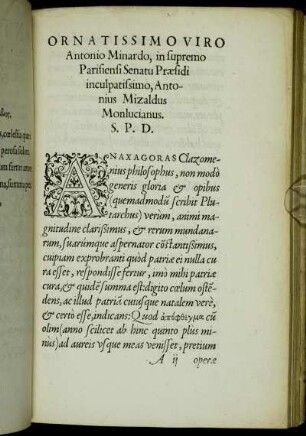 ORNATISSIMO VIRO
Antonio Minardo, in supremo
Parisiensi Senatu Præsidi
inculpatissimo, Anto-
nius Mizaldus
Monlucianus.
S. P. D.
ANAXAGORAS Clazome-
nius philosophus, non modò
generis gloria & opibus
(quemadmodũ scribit Plu-
tarchus) verùm, animi ma-
gnitudine clarissimus, & rerum mundana-
rum, suarúmque aspernator cõstãtissimus,
cuipiam exprobranti quòd patriæ ei nulla cu
ra esset, respondisse fertur, imò mihi patriæ
cura, & quidẽ summa est: digito cœlum ostẽ-
dens, ac illud patriã cuiusque natalem verè,
& certò esse, indicans: Quod ἀπόφθεγμα cũ
olim (anno scilicet ab hinc quinto plus mi-
nùs) ad aureis vsque meas venisset, pretium
A ij operæ